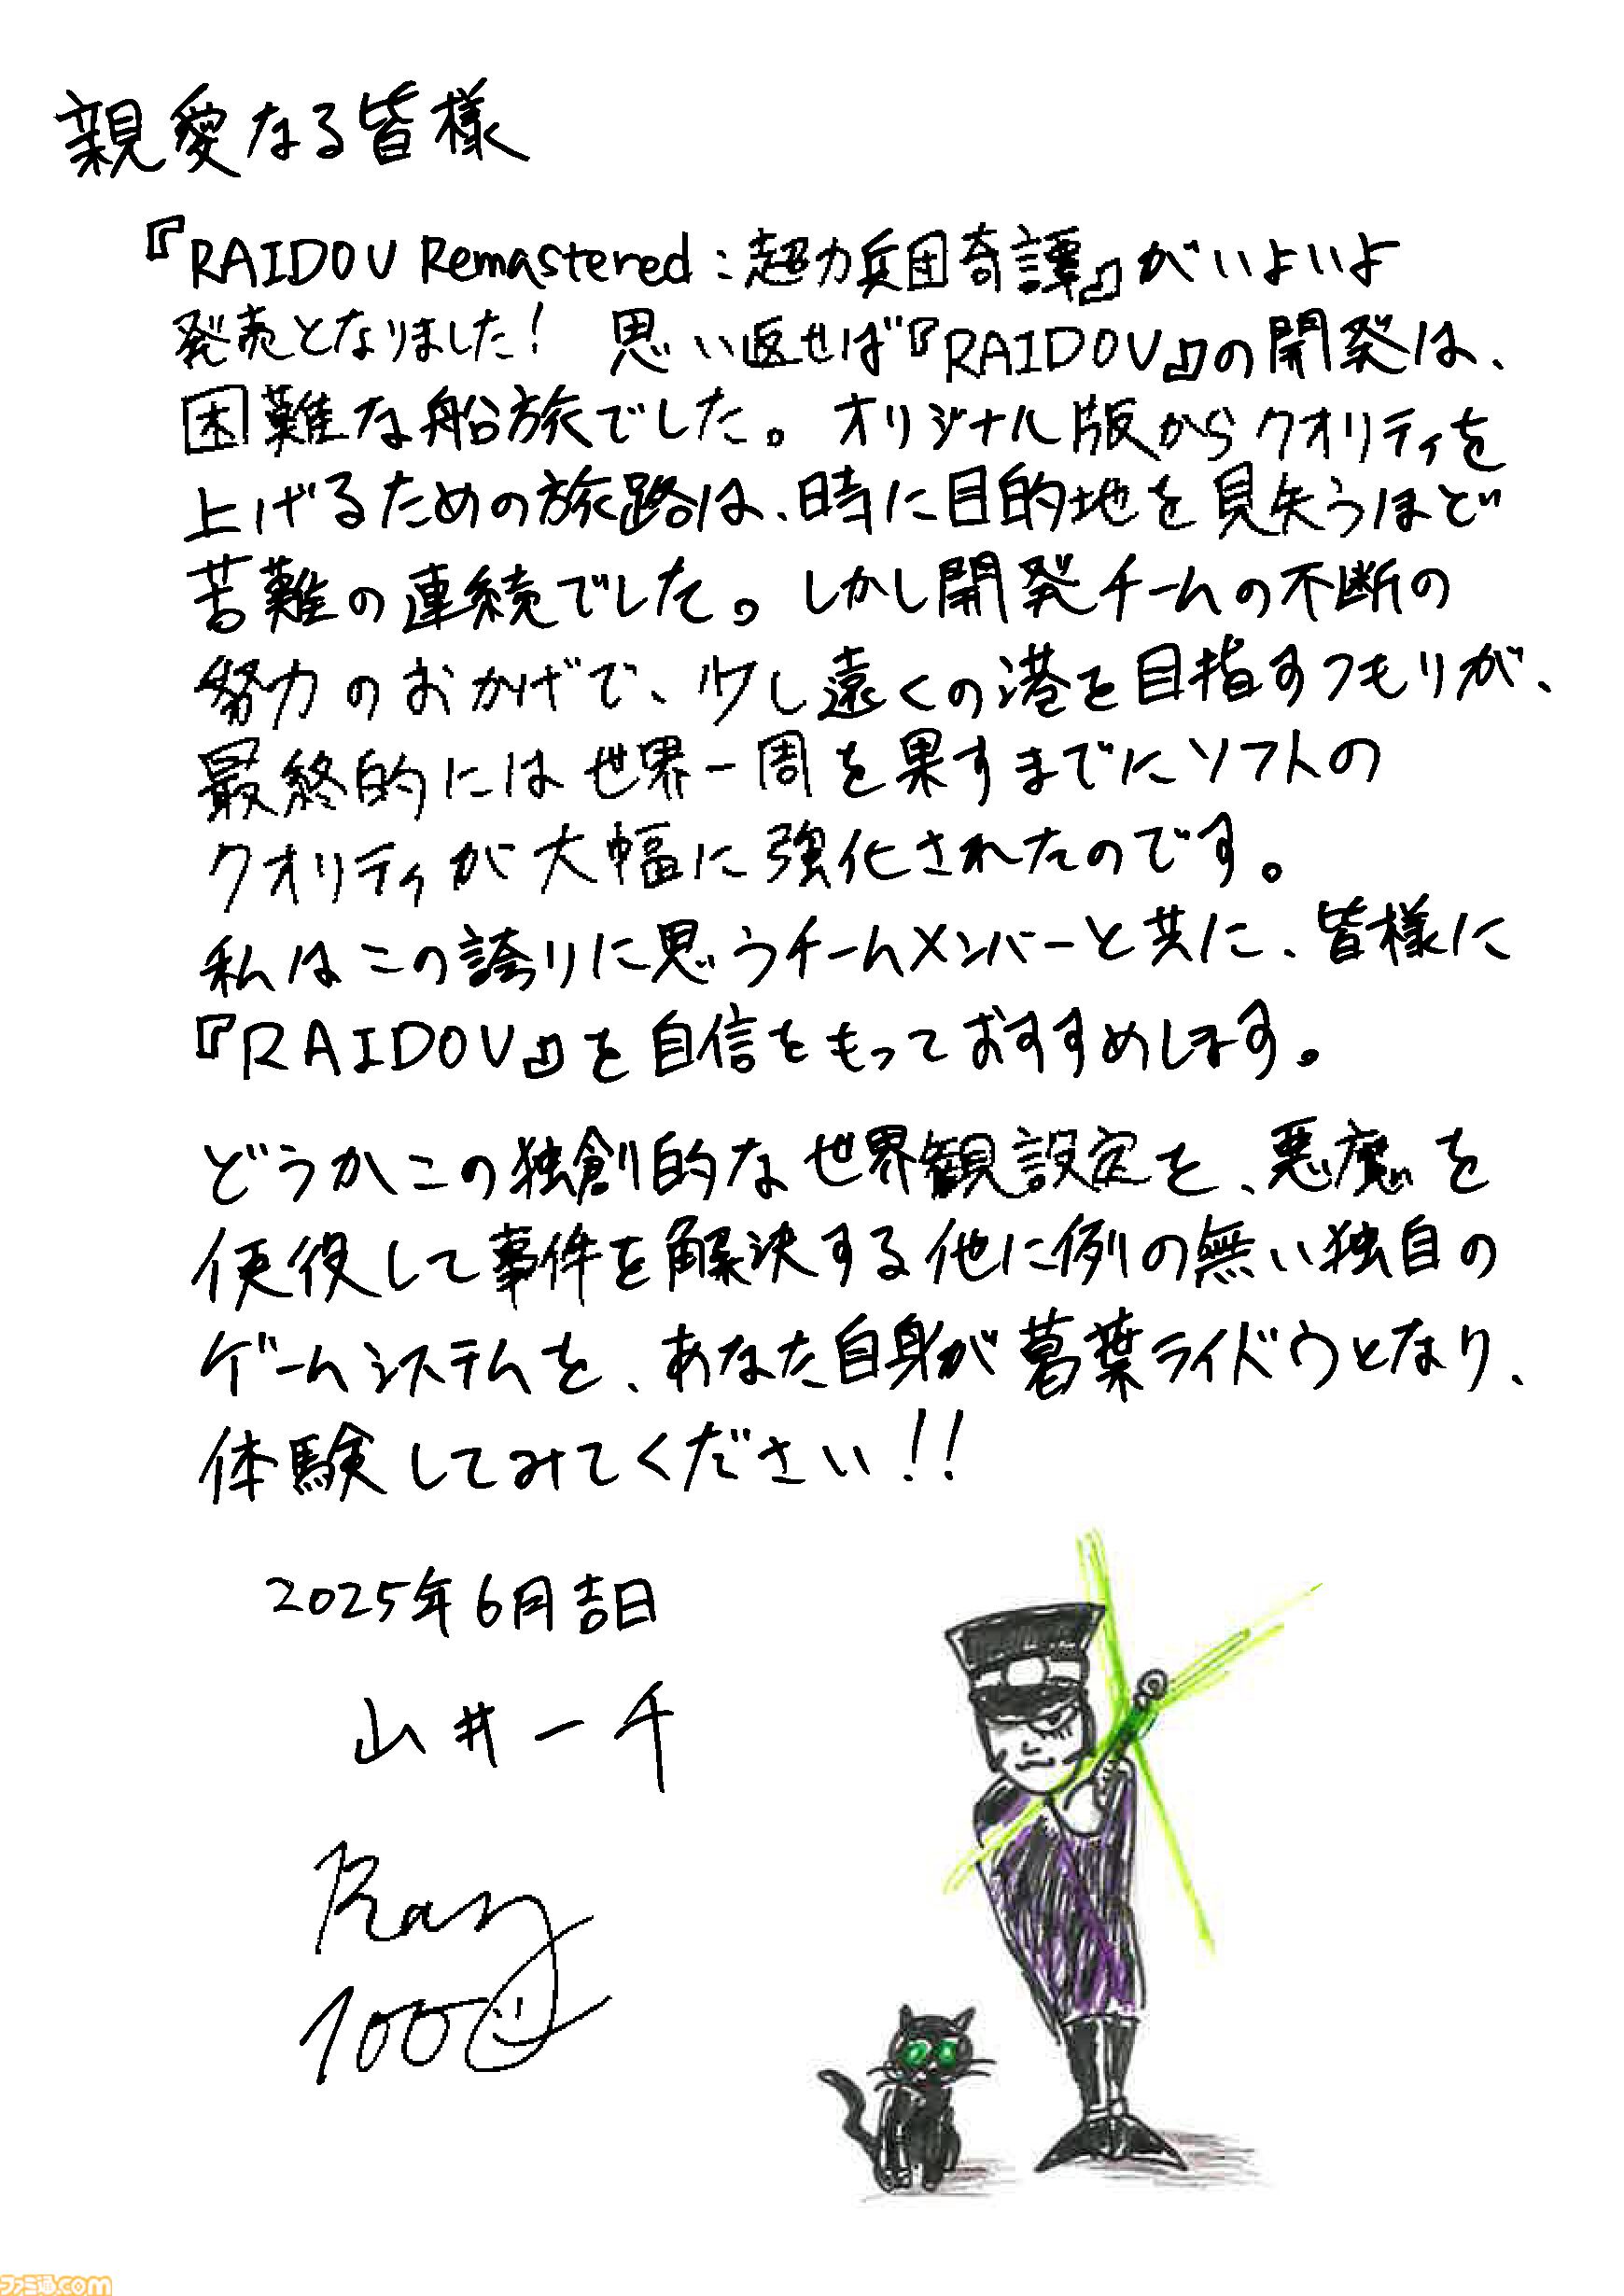 親愛なる皆様
『RAIDOU Remastered：超力兵団奇譚』がいよいよ
発売となりました！ 思い返せば『RAIDOU』の開発は、
困難な船旅でした。オリジナル版からクオリティを
上げるための旅路は、時に目的地を見失うほど
苦難の連続でした。しかし開発チームの不断の
努力のおかげで、少し遠くの港を目指すつもりが、
最終的には世界一周を果すまでにソフトの
クオリティが大幅に強化されたのです。
私はこの誇りに思うチームメンバーと共に、皆様に
『RAIDOU』を自信をもっておすすめします。
どうかこの独創的な世界観設定を、悪魔を
使役して事件を解決する他に例の無い独自の
ゲームシステムを、あなた自身が葛葉ライドウとなり、
体験してみてください！！
2025年6月吉日
山井一千
Kazy
1000
ファミ通.com